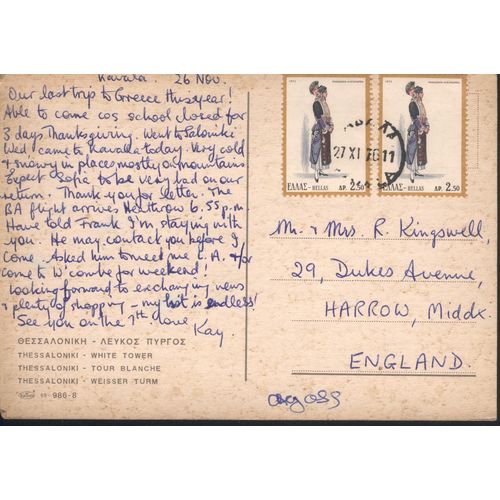 Kavala. 26 Nov.
Our last trip to Greece this year!
Able to come cos school closed for
3 days Thanksgiving. Went to Saloniki
Wed came to Kavala today. Very cold
& snowy in places mostly on mountains
Expect Sofia to be very bad on our
return. Thank you for letter. The
BA flight arrives Heathrow 6.55 p.m.
Have told Frank I'm staying with
you. He may contact you before I
come. Asked him to meet me L.A. &/or
come to W'combe for weekend!
Looking forward to exchang my news
& plenty of shopping – my list is endless!
See you on the 7th. love
Kay
ΘΕΣΣΑΛΟΝΙΚΗ - ΛΕΥΚΟΣ ΠΥΡΓΟΣ
THESSALONIKI - WHITE TOWER
THESSALONIKI - TOUR BLANCHE
THESSALONIKI - WEISSER TURM
986-8
ΕΛΛΑΣ-HELLAS ΔΡ. 2.50
ΕΛΛΑΣ-HELLAS ΔΡ. 2.50
27 XI 76 11
Mr. & Mrs. R. Kingswell,
29, Dukes Avenue,
HARROW, Middx.
ENGLAND.